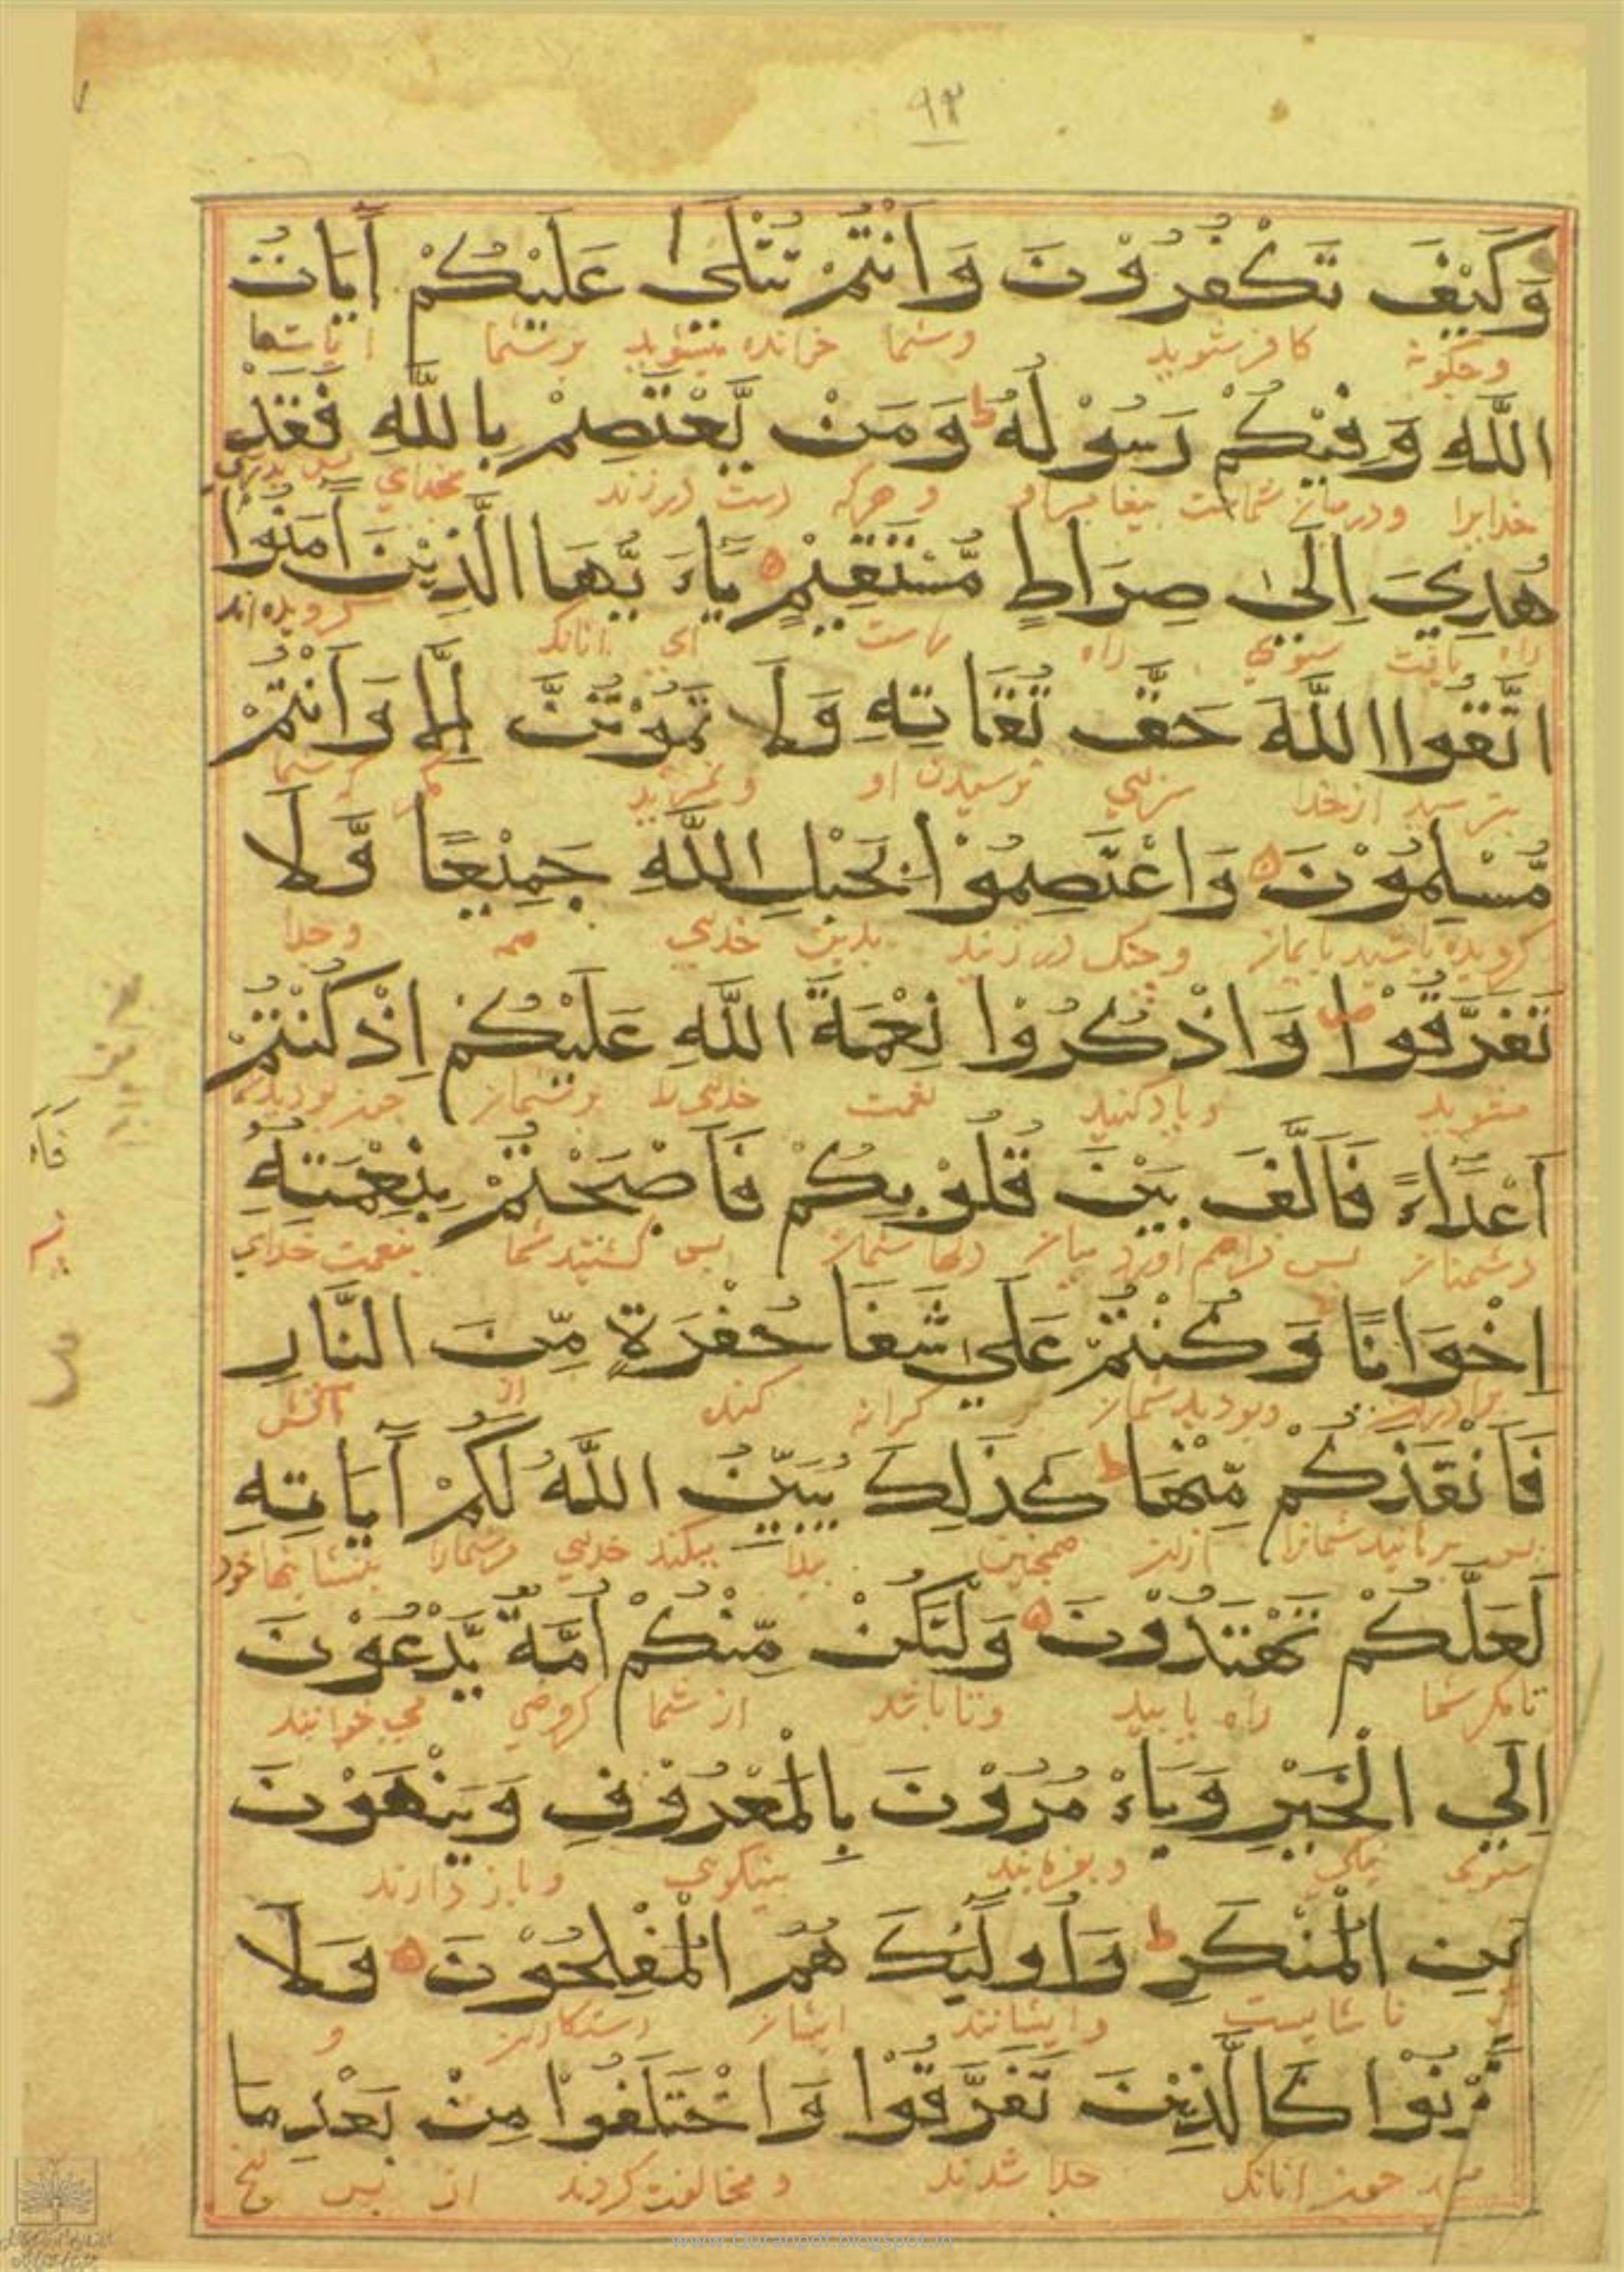 ٩٣
وَكَيْفَ تَكْفُرُوْنَ وَاَنْتُمْ تُتْلٰى عَلَيْكُمْ اٰيَاتُ
وچگونه کافر شوید وشما خوانده میشوید برشما
اللّٰهِ وَفِيْكُمْ رَسُوْلُهُ ط وَمَنْ يَّعْتَصِمْ بِاللّٰهِ فَقَدْ
خدایرا ودرمیان شماست پیغامبر او و هرکه دست درزند بخدای
هُدِيَ اِلٰى صِرَاطٍ مُّسْتَقِيْمٍ يَاءَ يُّهَا الَّذِيْنَ اٰمَنُوْا
راه یافت سوی راه راست ای آنانک گرویده اند
اتَّقُوا اللّٰهَ حَقَّ تُقَاتِهِ وَلَا تَمُوْتُنَّ اِلَّا وَاَنْتُمْ
بترسید ازخدا سزای ترسیدن او ومگر شما
مُّسْلِمُوْنَ وَاعْتَصِمُوْا بِحَبْلِ اللّٰهِ جَمِيْعًا وَّلَا
گرویده باشید وچنک درزنید بدین خدای همه وجدا
تَفَرَّقُوْا ص وَاذْكُرُوْا نِعْمَةَ اللّٰهِ عَلَيْكُمْ اِذْ كُنْتُمْ
مشوید ویادکنید نعمت خدای را برشما چون بودید
اَعْدَاءً فَاَلَّفَ بَيْنَ قُلُوْبِكُمْ فَاَصْبَحْتُمْ بِنِعْمَتِهِ
دشمنان پس فراهم آورد میان دلها شما پس گشتید شما بنعمت خدای
اِخْوَانًا وَكُنْتُمْ عَلٰى شَفَا حُفْرَةٍ مِّنَ النَّارِ
برادران وبودید شما بر کرانه کنده از آتش
فَاَنْقَذَكُمْ مِّنْهَا ط كَذَلِكَ يُبَيِّنُ اللّٰهُ لَكُمْ اٰيَاتِهِ
پس برهانید شمارا ازان همچنین پیدا میکند خدای مرشمارا نشانیها خود
لَعَلَّكُمْ تَهْتَدُوْنَ وَلْتَكُنْ مِّنْكُمْ اُمَّةٌ يَّدْعُوْنَ
تامگر شما راه یابید وتا باشد از شما گروهی می خوانند
اِلَي الْخَيْرِ وَيَاءْ مُرُوْنَ بِالْمَعْرُوْفِ وَيَنْهَوْنَ
سوی نیکی وبفرمایند بنیکوی وباز دارند
عَنِ الْمُنْكَرِ ط وَاُولٰئِكَ هُمُ الْمُفْلِحُوْنَ وَلَا
از ناشایست وایشانند ایشان رستگاران و
تَكُوْنُوْا كَالَّذِيْنَ تَفَرَّقُوْا وَاخْتَلَفُوْا مِنْ بَعْدِ مَا
چون آنانک جدا شدند ومخالفت کردند از پس
www.Quranpdf.blogspot.in